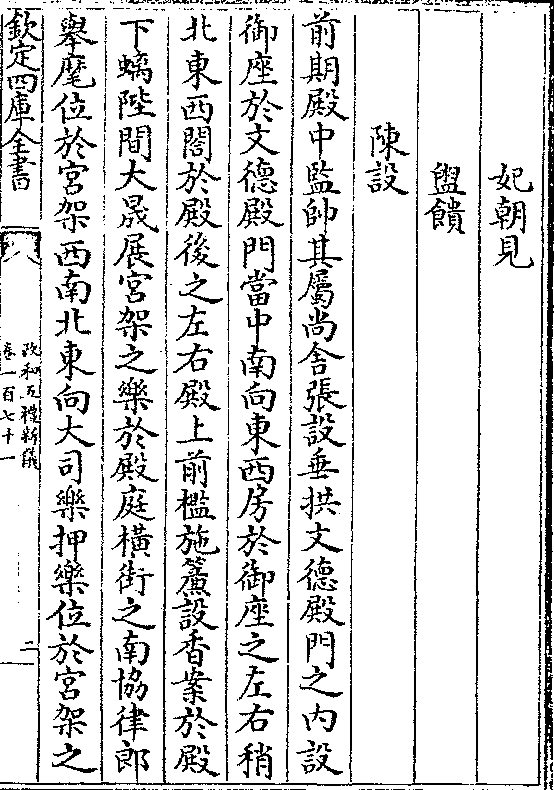 妃朝見
盥饋
陳設
前期殿中監帥其屬尚舍張設垂拱文德殿門之内設
御座於文德殿門當中南向東西房於御座之左右稍
北東西閤於殿後之左右殿上前楹施簾設香案於殿
下螭陛間大晟展宮架之樂於殿庭橫街之南協律郎
舉麾位於宮架西南北東向大司樂押樂位於宮架之
欽定四庫全書
政和五禮新儀
卷一百七十一
二